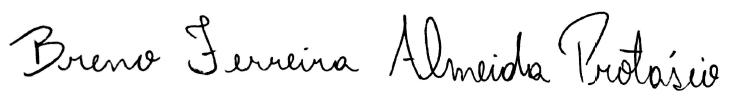 Breno Ferreira Almeida Protásio